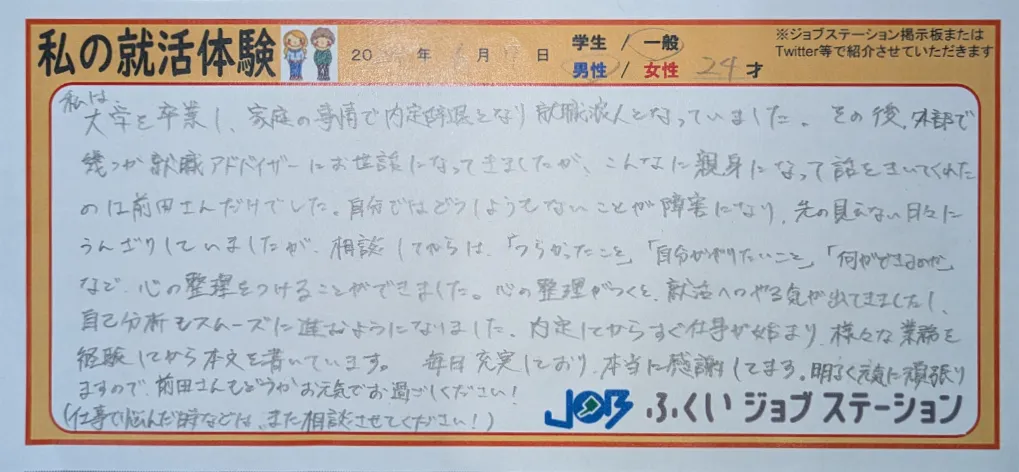 私の就活体験
20 年 月 日
学生 / 一般
男性 / 女性 24才
※ジョブステーション掲示板または
Twitter等で紹介させていただきます
私は
大学を卒業し、家庭の事情で内定辞退となり就職浪人となっていました。その後、外部で
幾つか就職アドバイザーにお世話になってきましたが、こんなに親身になって話をきいてくれた
のは前田さんだけでした。自分ではどうしようもないことが障害になり、先の見えない日々に
うんざりしていましたが、相談してからは、「つらかったこと」「自分がやりたいこと」「何ができるのか」
など、心の整理をつけることができました。心の整理がつくと、就活へのやる気が出てきましたし、
自己分析もスムーズに進むようになりました。内定してからすぐ仕事が始まり、様々な業務を
経験してから本文を書いています。毎日充実しており、本当に感謝してます。明るく元気に頑張り
ますので、前田さんもどうかお元気でお過ごしください!
(仕事で悩んだ時などは、また相談させてください!)
JOB ふくいジョブステーション